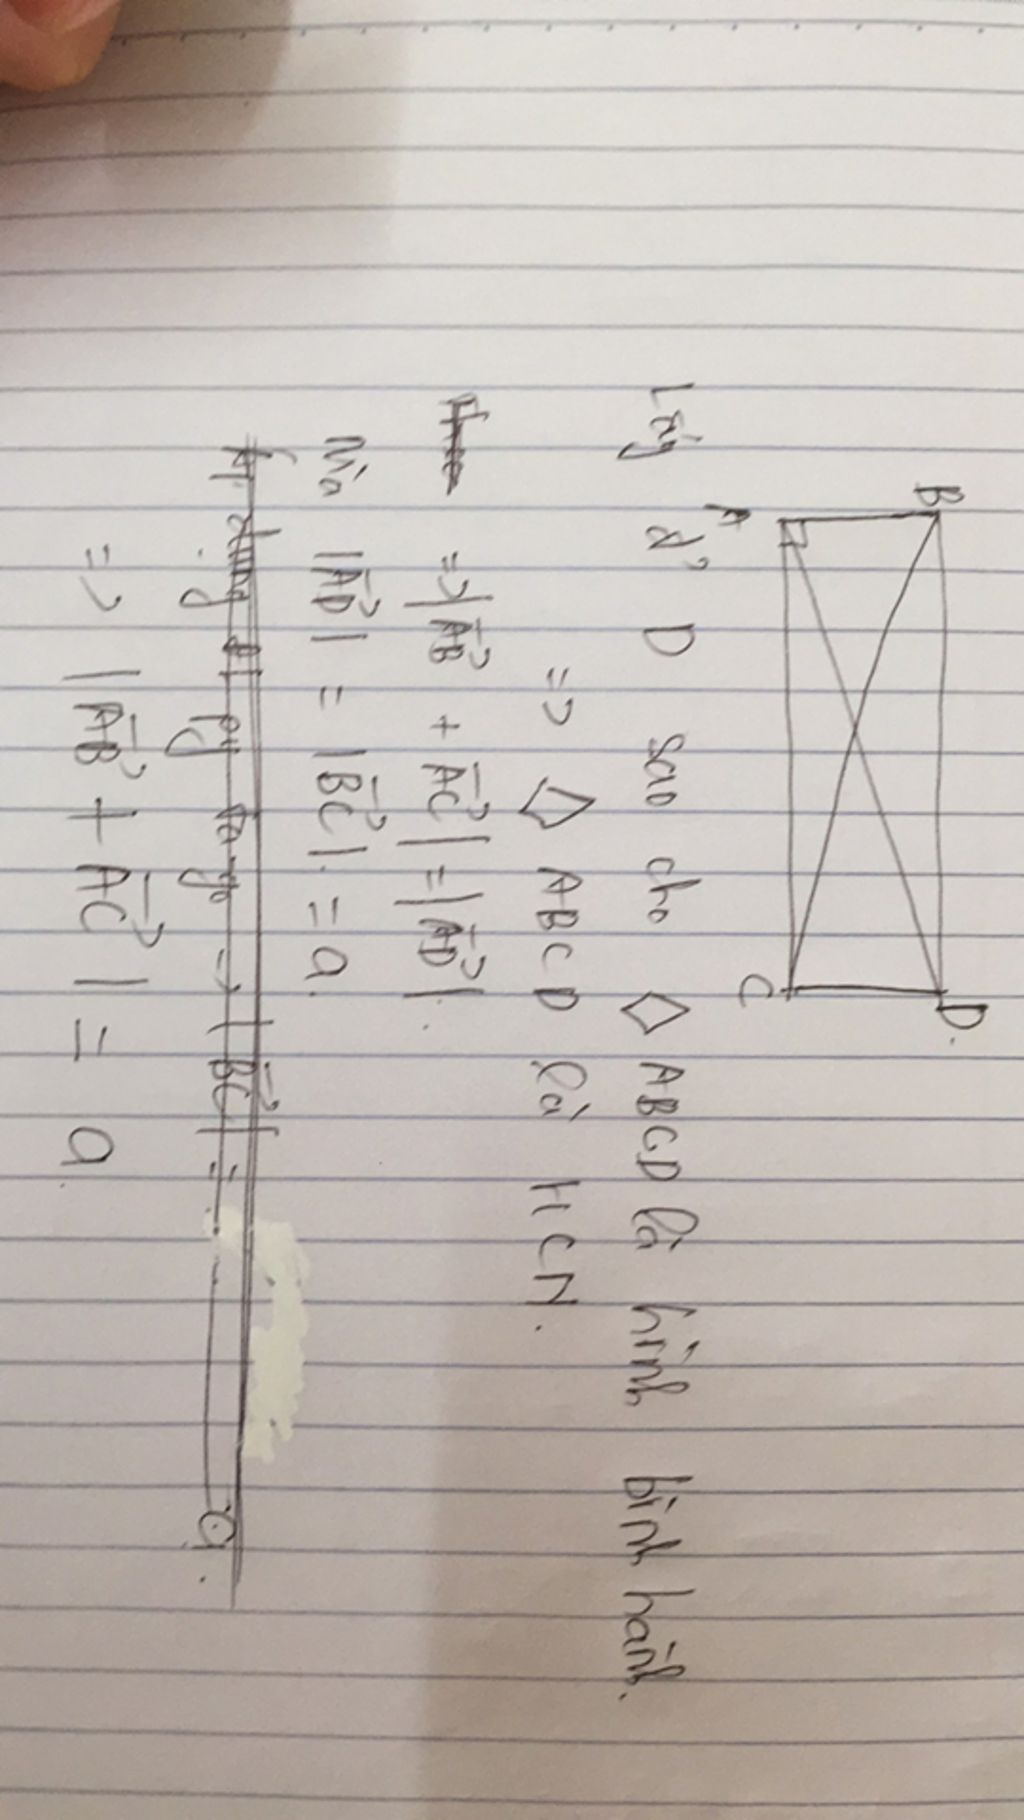 B
D.
A
C
Lấy đ' D sao cho ◇ ABCD là hình bình hành.
=> ◇ ABCD là HCN.
=> |AB→ + AC→| = |AD→|.
Mà |AD→| = |BC→|. = a.
py ta go → |BC→| = a.
=> |AB→ + AC→| = a.